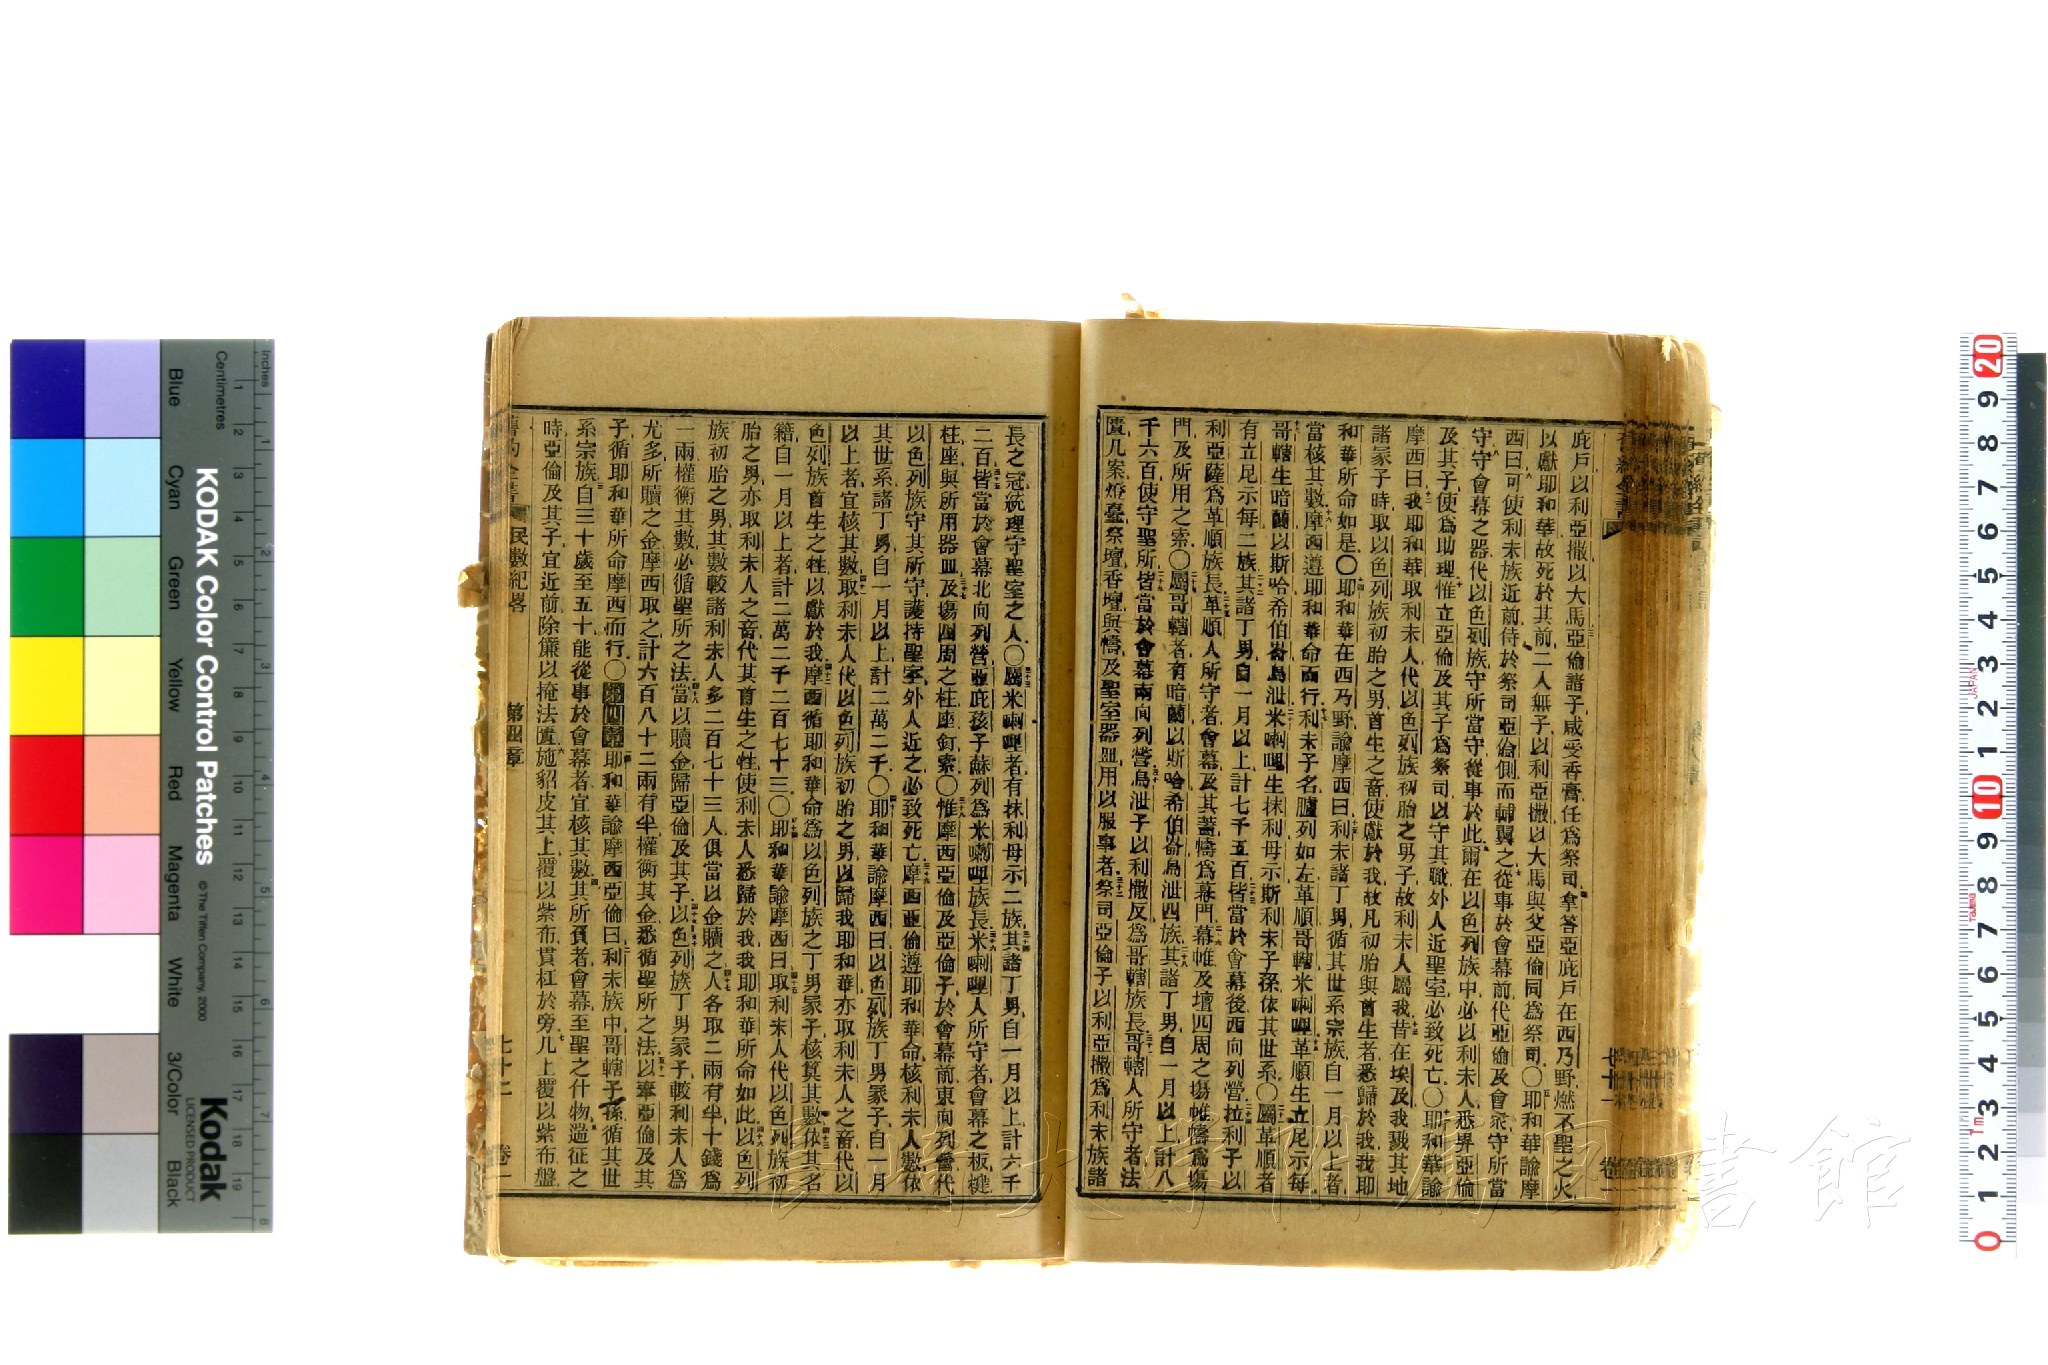 庇戶以利亞撒以大馬亞倫諸子咸受香膏任爲祭司拿答亞庇戶在西乃野燃不聖之火
以獻耶和華故死於其前二人無子以利亞撒以大馬與父亞倫同爲祭司〇耶和華諭摩
西曰可使利未族近前侍於祭司亞倫側而輔翼之從事於會幕前代亞倫及會衆守所當
守守會幕之器代以色列族守所當守從事於此爾在以色列族中必以利未人悉畀亞倫
及其子使爲助理惟立亞倫及其子爲祭司以守其職外人近聖室必致死亡〇耶和華諭
摩西曰我耶和華取利未人代以色列族初胎之男子故利未人屬我昔在埃及我戮其地
諸冢子時取以色列族初胎之男首生之畜使獻於我故凡初胎與首生者悉歸於我我耶
和華所命如是〇耶和華在西乃野諭摩西曰利未諸丁男循其世系宗族自一月以上者
當核其數摩西遵耶和華命而行利未子名臚列如左革順哥轄米喇哩革順生立尼示每
哥轄生暗蘭以斯哈希伯崙烏泄米喇哩生抹利母示斯利未子孫依其世系〇屬革順者
有立尼示每二族其諸丁男自一月以上計七千五百皆當於會幕後西向列營拉利子以
利亞薩爲革順族長革順人所守者會幕及其蓋幬爲幕門幕帷及壇四周之塲帷幬爲塲
門及所用之索〇屬哥轄者有暗蘭以斯哈希伯崙烏泄四族其諸丁男自一月以上計八
千六百使守聖所皆當於會幕南向列營烏泄子以利撒反爲哥轄族長哥轄人所守者法
匱几案燈臺祭壇香壇與幬及聖室器皿用以服事者祭司亞倫子以利亞撒爲利未族諸
長之冠統理守聖室之人〇屬米喇哩者有抹利母示二族其諸丁男自一月以上計六千
二百皆當於會幕北向列營亞庇孩子蘇列爲米喇哩族長米喇哩人所守者會幕之板楗
柱座與所用器皿及塲四周之柱座釘索〇惟摩西亞倫及亞倫子於會幕前東向列營代
以色列族守其所守護持聖室外人近之必致死亡摩西亞倫遵耶和華命核利未人數依
其世系諸丁男自一月以上計二萬二千〇耶和華諭摩西曰以色列族丁男冢子自一月
以上者宜核其數取利未人代以色列族初胎之男以歸我耶和華亦取利未人之畜代以
色列族首生之牲以獻於我摩西循耶和華命爲以色列族之丁男冢子核算其數依其名
籍自一月以上者計二萬二千二百七十三〇耶和華諭摩西曰取利未人代以色列族初
胎之男亦取利未人之畜代其首生之牲使利未人悉歸於我我耶和華所命如此以色列
族初胎之男其數較諸利未人多二百七十三人俱當以金贖之人各取二兩有半十錢爲
一兩權衡其數必循聖所之法當以贖金歸亞倫及其子以色列族丁男冢子較利未人爲
尤多所贖之金摩西取之計六百八十二兩有半權衡其金悉循聖所之法以畀亞倫及其
子循耶和華所命摩西而行〇第四章耶和華諭摩西亞倫曰利未族中哥轄子孫循其世
系宗族自三十歲至五十能從事於會幕者宜核其數其所負者會幕至聖之什物遄征之
時亞倫及其子宜近前除簾以掩法匱施貂皮其上覆以紫布貫杠於旁几上覆以紫布盤
舊約全書 民數紀畧 第四章 七十二 卷一
長崎大學附屬圖書館
KODAK Color Control Patches
© The Tiffen Company, 2000
Kodak
LICENSED PRODUCT
Inches
Centimetres
Blue
Cyan
Green
Yellow
Red
Magenta
White
3/Color
Black